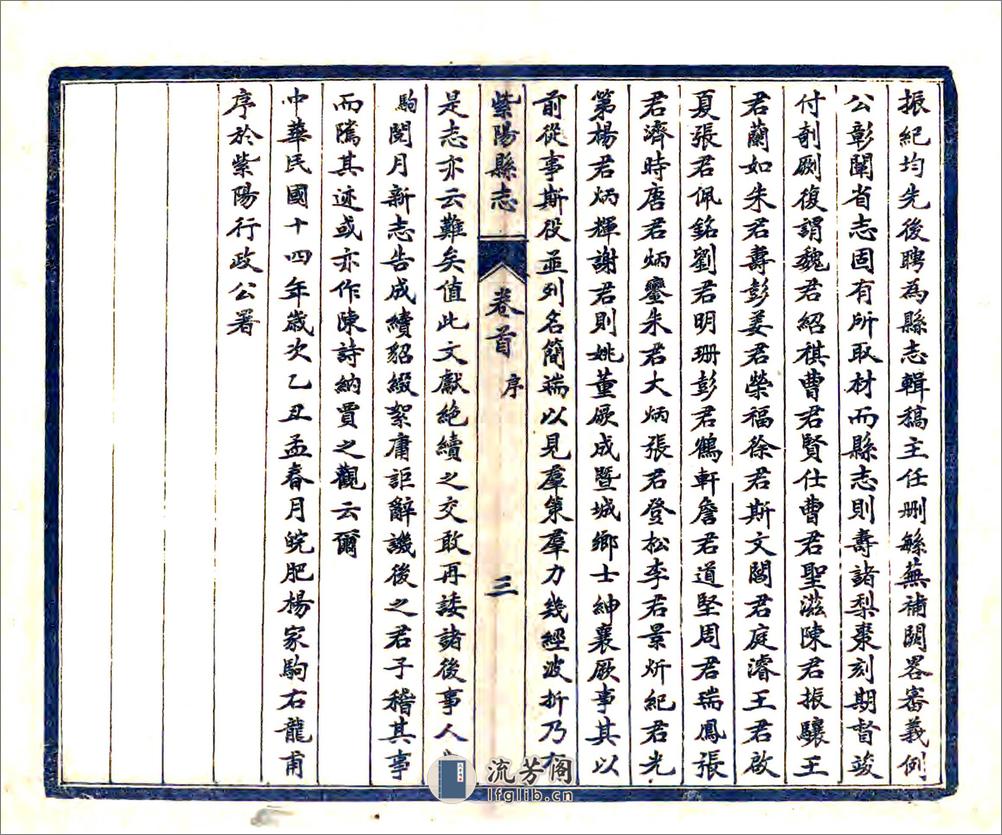 振紀均先後聘為縣志輯稿主任刪繇蕪補闕畧審義例
公彰闡省志固有所取材而縣志則壽諸梨棗刻期督竣
付剞劂復謂魏君紹祺曹君賢仕曹君聖滋陳君振驤王
君蘭如朱君壽彭姜君榮福徐君斯文閻君庭濬王君啟
夏張君佩銘劉君明珊彭君鶴軒詹君道堅周君瑞鳳張
君濟時唐君炳鑾朱君大炳張君登松李君景炘紀君光
第楊君炳輝謝君則姚董厥成暨城鄉士紳襄厥事其以
前從事斯役並列名簡端以見羣策羣力幾經波折乃有
紫陽縣志 卷首 序 三
是志亦云難矣值此文獻絕續之交敢再諉諸後事人
駒閱月新志告成續貂綴絮庸詎辭譏後之君子稽其事
而隲其迹或亦作陳詩納賈之觀云爾
中華民國十四年歲次乙丑孟春月皖肥楊家駒右龍甫
序於紫陽行政公署
流芳阁
lfglib.cn